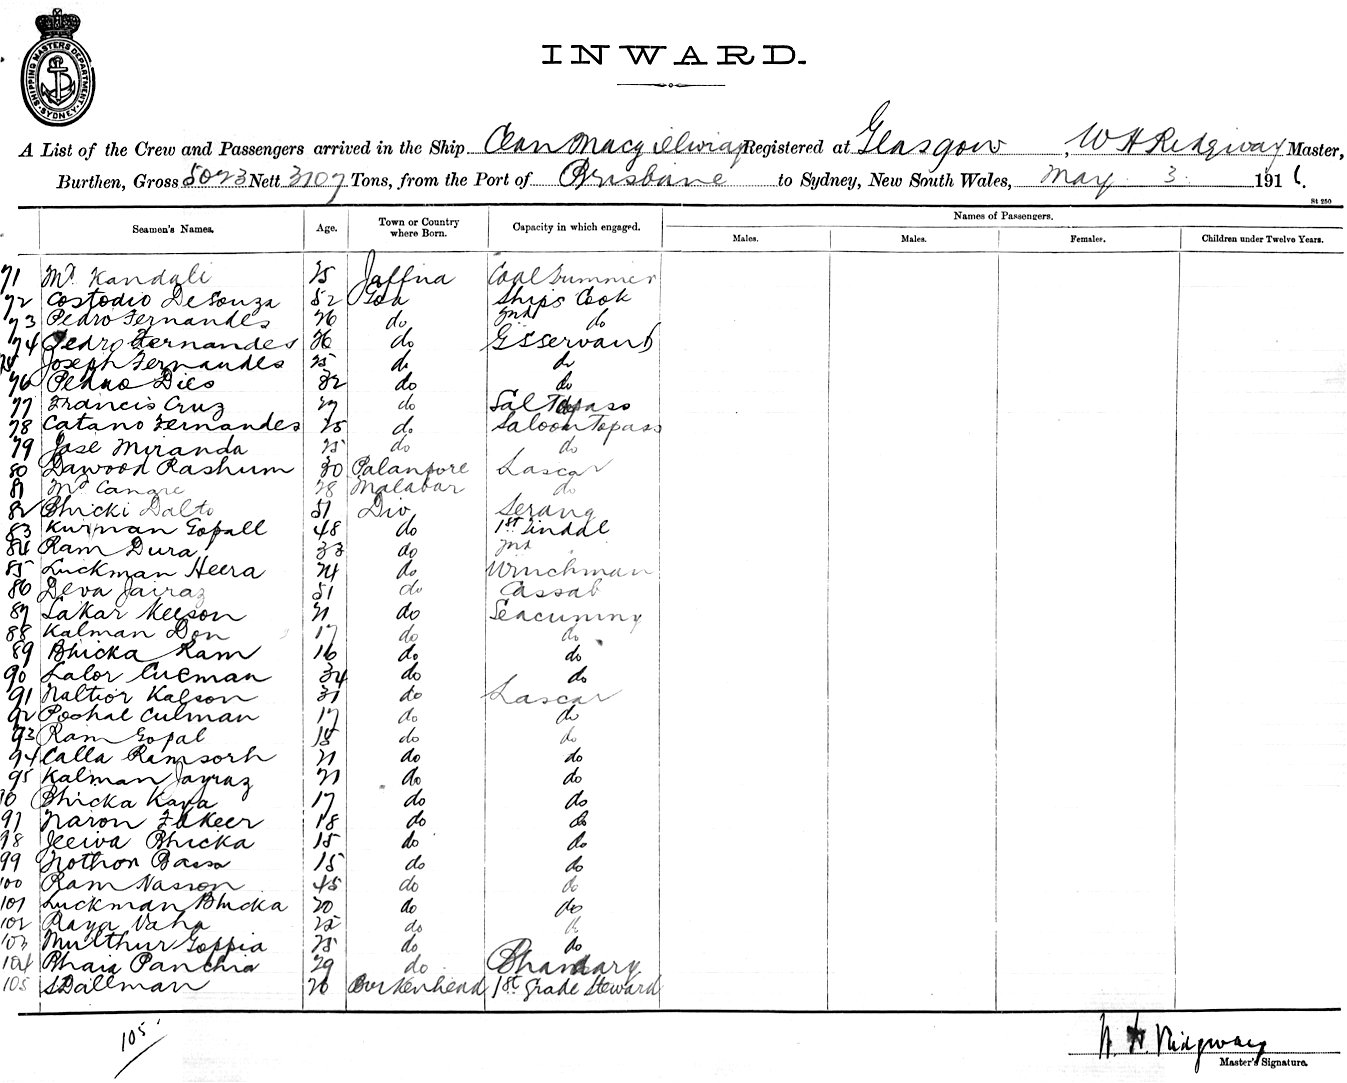 SHIPPING MASTERS DEPARTMENT SYDNEY
INWARD.
A List of the Crew and Passengers arrived in the Ship Clan Macgillivray Registered at Glasgow, W H Ridgway Master,
Burthen, Gross 5023 Nett 3107 Tons, from the Port of Brisbane to Sydney, New South Wales, May 3 191
St 250
Seamen's Names. Age. Town or Country where Born. Capacity in which engaged. Names of Passengers.
Males. Males. Females. Children under Twelve Years.
71 Kandali 25 Jaffna Coal Trimmer
72 Costodio DeSouza 52 Goa Ships Cook
73 Pedro Fernandes 26 do 2nd do
74 Pedro Fernandes 26 do GSServant
Joseph Fernandes 25 do do
76 Dies 32 do do
77 Francis Cruz 27 do Sal Topass
78 Catano Fernandes 25 do Saloon Topass
79 Jose Miranda 25 do do
80 Dawood Rashum 30 Palanpore Lascar
81 28 Malabar do
82 Bhicki Dalto 51 Div Serang
83 Gopall 48 do 1st Tindal
84 Ram Dura 33 do 2nd
85 Luckman Heera 24 do Winchman
86 Deva Jairaz 51 do Cassab
87 Lakar Keeson 21 do Seacunny
88 Kalman Don 17 do do
89 Bhicka Ram 16 do do
90 Lalor 34 do do
91 Kalson 31 do Lascar
92 Culman 17 do do
93 Ram Gopal do do
94 Calla Ramsorh 21 do do
95 Kalman Jayraz 21 do do
Bhicka Kaya 17 do do
97 Naron Fakeer 18 do do
98 Jeeiva Bhicka 15 do do
99 Nothon 15 do do
100 Ram Nasson 45 do do
101 Luckman Bhicka 20 do do
102 Raya Vaha 22 do do
103 Multhur Goppia 25 do do
104 Bhaia Panchia 29 do Bhandary
105 S Dallman 26 Burkenhead 1st Grade Steward
105
W. H. Ridgway
Master's Signature.